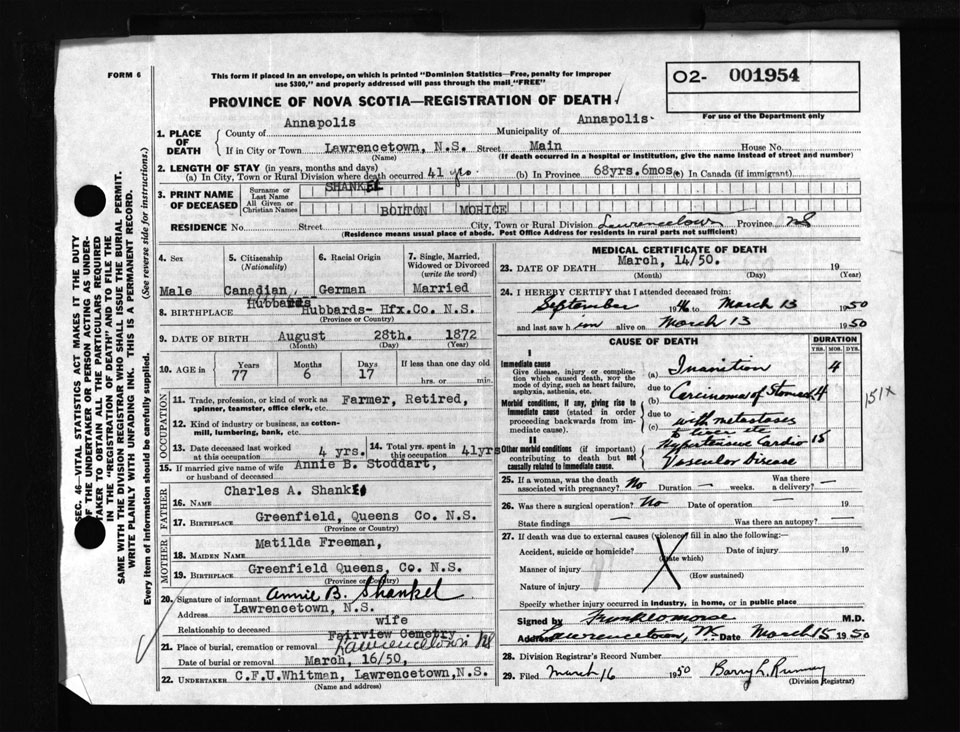 FORM 6
This form if placed in an envelope, on which is printed "Dominion Statistics—Free, penalty for improper
use $300," and properly addressed will pass through the mail "FREE"
PROVINCE OF NOVA SCOTIA—REGISTRATION OF DEATH
O2- 001954
For use of the Department only
1. PLACE OF DEATH
County of Annapolis Municipality of Annapolis
If in City or Town Lawrencetown, N.S. Street Main House No.
(Name) (If death occurred in a hospital or institution, give the name instead of street and number)
2. LENGTH OF STAY (in years, months and days)
(a) In City, Town or Rural Division where death occurred 41 yrs. (b) In Province 68yrs.6mos (c) In Canada (if immigrant)
3. PRINT NAME OF DECEASED
Surname or Last Name SHANKEL
All Given or Christian Names BOLTON MORICE
RESIDENCE No. Street City, Town or Rural Division Lawrencetown Province NS
(Residence means usual place of abode. Post Office Address for residents in rural parts not sufficient)
4. Sex 5. Citizenship (Nationality) 6. Racial Origin 7. Single, Married, Widowed or Divorced (write the word)
Male Canadian German Married
Hubbards
8. BIRTHPLACE Hubbards- Hfx.Co. N.S.
(Province or Country)
9. DATE OF BIRTH August 28th. 1872
(Month) (Day) (Year)
10. AGE in Years Months Days If less than one day old
77 6 17 hrs. or min.
OCCUPATION
11. Trade, profession, or kind of work as
spinner, teamster, office clerk, etc. Farmer, Retired,
12. Kind of industry or business, as cotton-
mill, lumbering, bank, etc.
13. Date deceased last worked
at this occupation 4 yrs.
14. Total yrs. spent in
this occupation 41yrs
15. If married give name of wife
or husband of deceased Annie B. Stoddart,
FATHER
16. NAME Charles A. Shankel
17. BIRTHPLACE Greenfield, Queens Co. N.S.
(Province or Country)
MOTHER
18. MAIDEN NAME Matilda Freeman,
19. BIRTHPLACE Greenfield Queens, Co. N.S.
(Province or Country)
20. Signature of informant Annie B. Shankel
Address Lawrencetown, N.S.
Relationship to deceased wife
21. Place of burial, cremation or removal Fairview Cemetry
Lawrencetown NS
Date of burial or removal March, 16/50,
22. UNDERTAKER C.F.U.Whitman, Lawrencetown,N.S.
(Name and address)
MEDICAL CERTIFICATE OF DEATH
23. DATE OF DEATH March, 14/50. 19
(Month) (Day) (Year)
24. I HEREBY CERTIFY that I attended deceased from:
September 1946 to March 13 1950
and last saw him alive on March 13 1950
CAUSE OF DEATH
DURATION
YRS. MOS. DYS.
I
Immediate cause
Give disease, injury or complica-
tion which caused death, NOT the
mode of dying, such as heart failure,
asphyxia, asthenia, etc.
(a) Inanition 4
due to
Morbid conditions, if any, giving rise to
immediate cause (stated in order
proceeding backwards from im-
mediate cause).
(b) Carcinoma of Stomach 4
due to
(c) with metastases
to liver etc
151X
II
Other morbid conditions (if important)
contributing to death but not
causally related to immediate cause.
Hypertensive Cardio 15
Vascular Disease
25. If a woman, was the death
associated with pregnancy? No Duration — weeks. Was there
a delivery? —
26. Was there a surgical operation? No Date of operation — 19
State findings — Was there an autopsy? —
27. If death was due to external causes (violence) fill in also the following:—
Accident, suicide or homicide? (State which) Date of injury 19
Manner of injury (How sustained)
Nature of injury
Specify whether injury occurred in industry, in home, or in public place
Signed by M.D.
Address Lawrencetown, Date March 15 1950
28. Division Registrar's Record Number
29. Filed March 16 1950 Barry L.
(Division Registrar)
SEC. 46—VITAL STATISTICS ACT MAKES IT THE DUTY
OF THE UNDERTAKER OR PERSON ACTING AS UNDER-
TAKER TO OBTAIN ALL THE PARTICULARS REQUIRED
IN THE "REGISTRATION OF DEATH" AND TO FILE THE
SAME WITH THE DIVISION REGISTRAR WHO SHALL ISSUE THE BURIAL PERMIT.
WRITE PLAINLY WITH UNFADING INK. THIS IS A PERMANENT RECORD.
Every item of information should be carefully supplied. (See reverse side for instructions.)